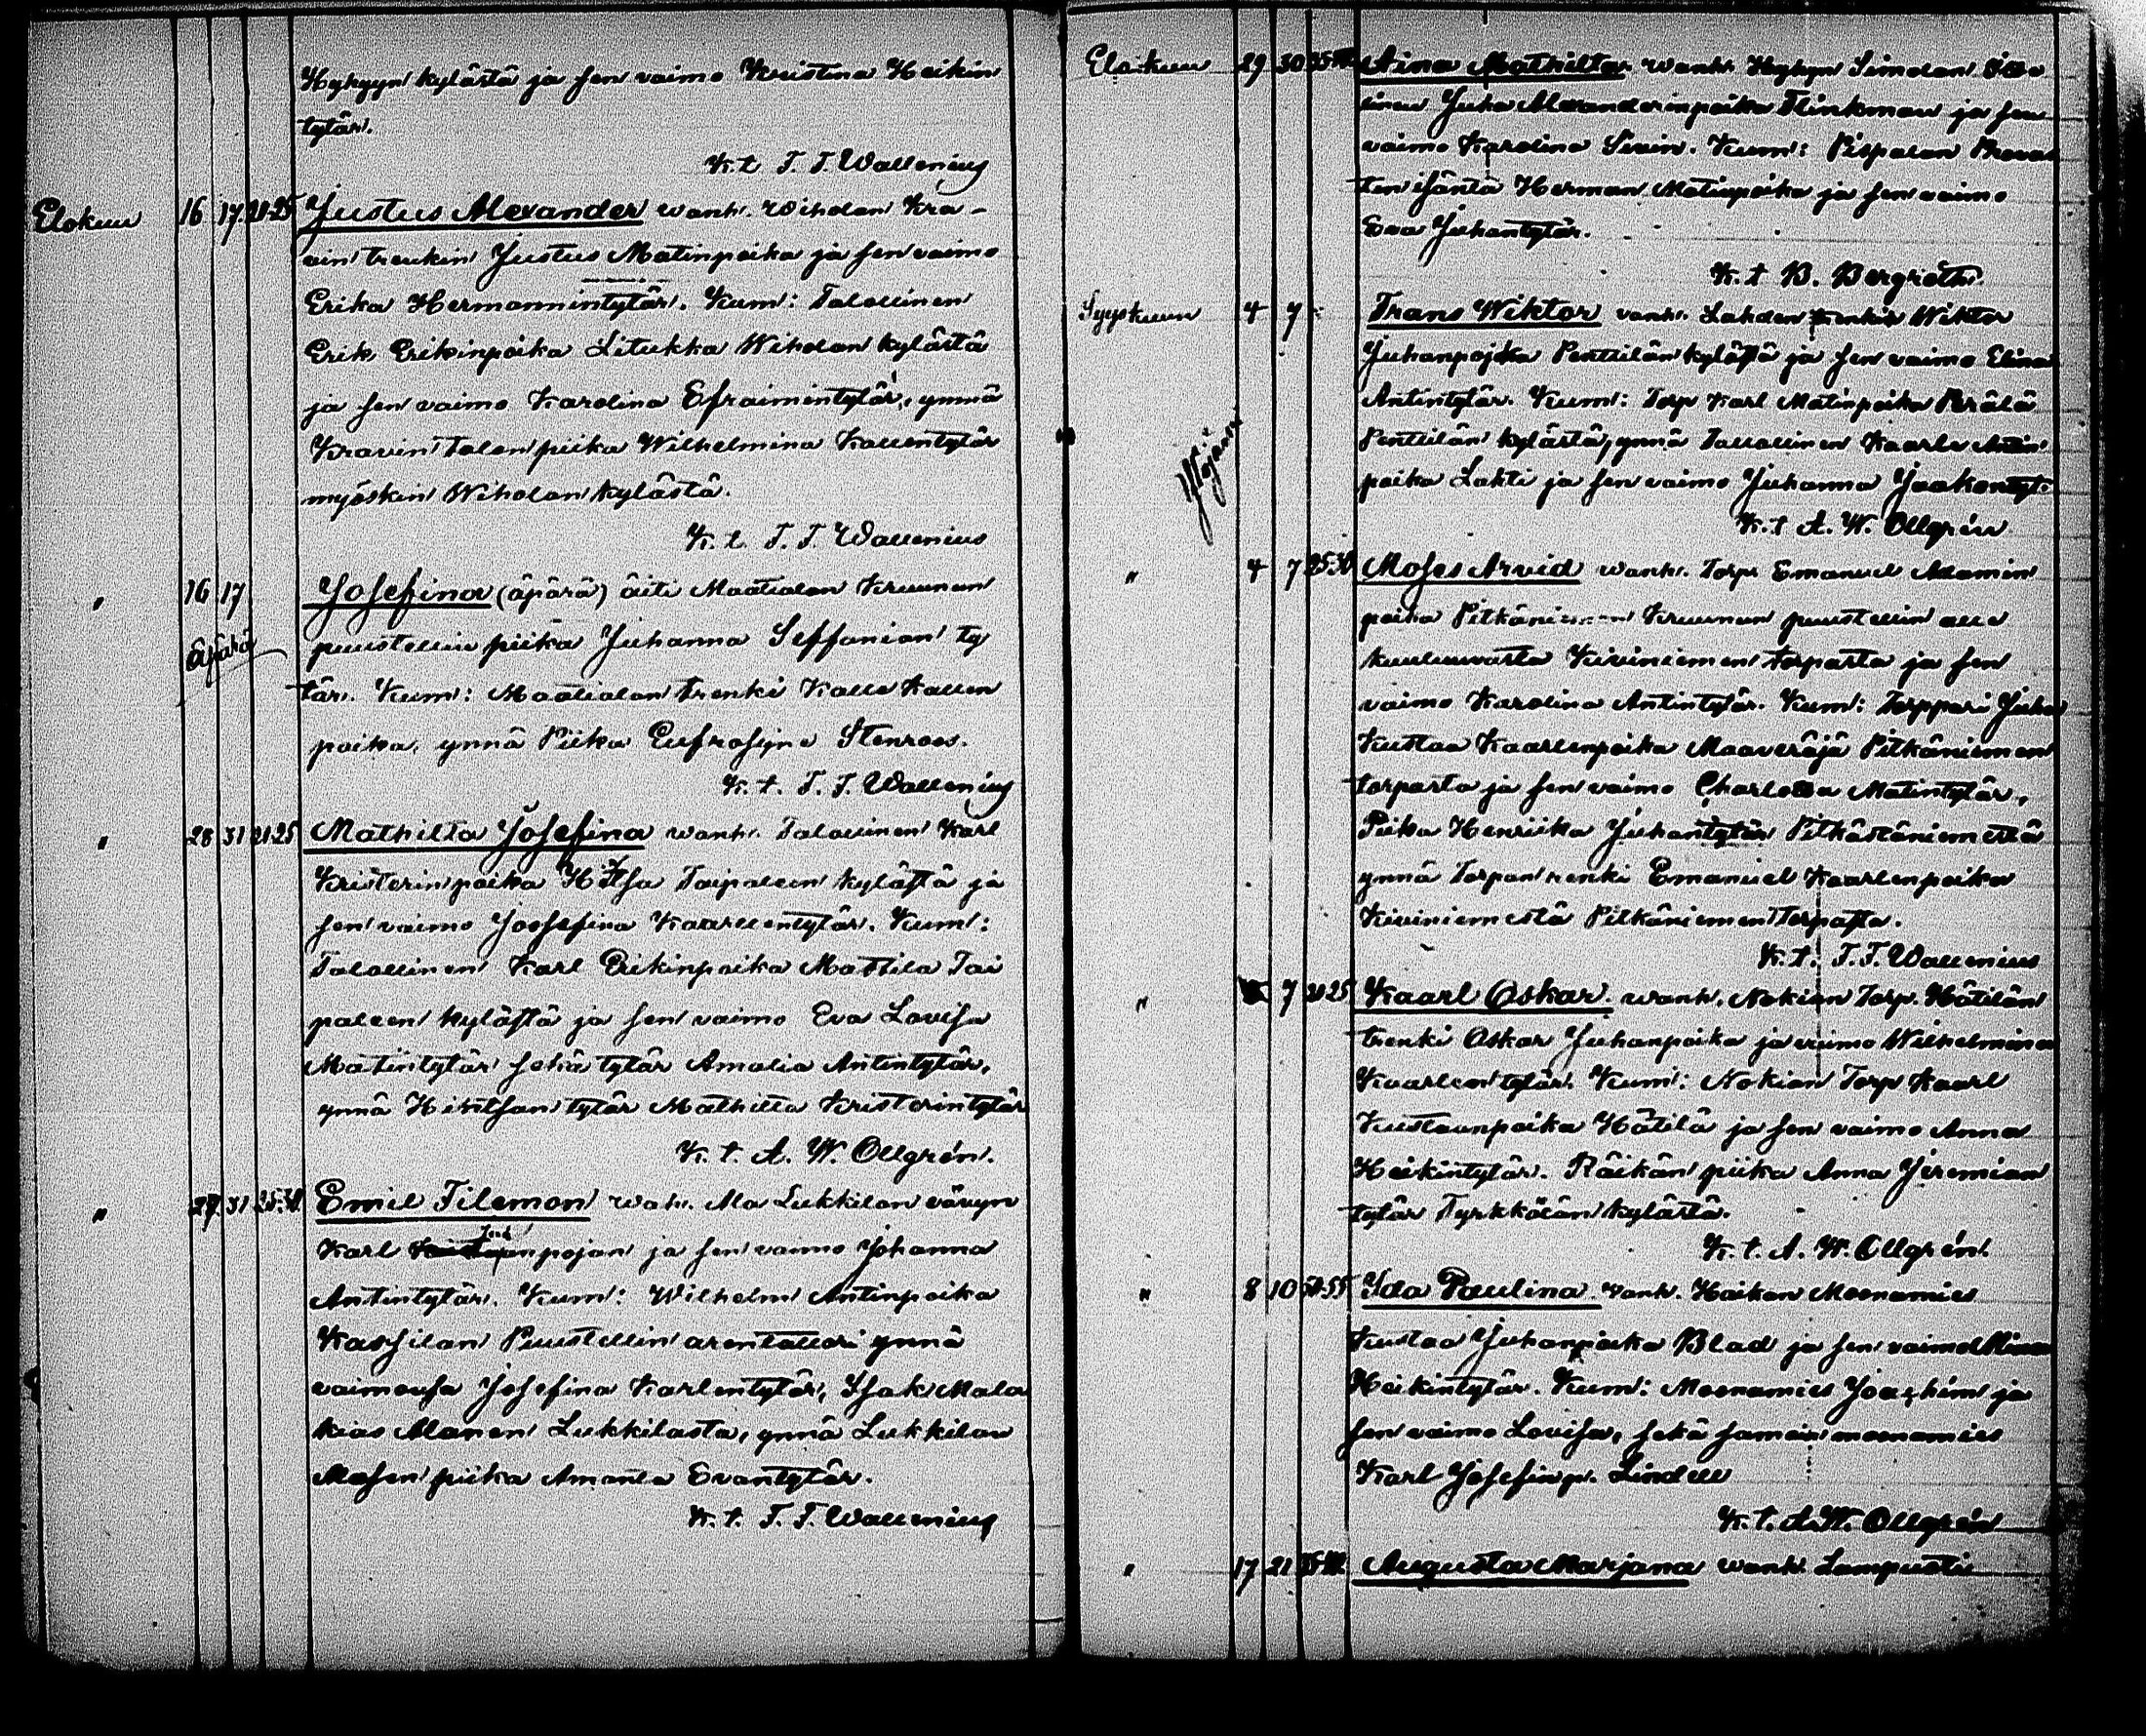 Hyhyyn kylästä ja sen vaimo Kristina Heikin
tytär.
K. t. F. F. Wallenius
Elokuu 16 17 21-25 Justus Alexander wanh. Wiholan Kra-
vin trenkin Justus Matinpoika ja sen vaimo
Erika Hermannintytär. Kum: Talollinen
Erik Erikinpoika Litukka Wiholan kylästä
ja sen vaimo Karolina Efraimintytär, ynnä
Kravin talon piika Wilhelmina Kallentytär
myöskin Wiholan kylästä.
K. t. F. F. Wallenius
" 16 17 Josefina (äpärä) äiti Maatialan Kruunun
äpärä puustellin piika Juhanna Seffanian ty
tär. Kum: Maatialan trenki Kalle Kallen
poika, ynnä Piika Eufrosyne Stenroos.
K. t. F. F. Wallenius
" 28 31 21-25 Mathilta Josefina wanh. Talollinen Karl
Kristerinpoika Hitsa Taipaleen kylästä ja
sen vaimo Joosefina Kaarlentytär. Kum:
Talollinen Karl Erikinpoika Mattila Tai
paleen kylästä ja sen vaimo Eva Lovisa
Matintytär sekä tytär Amalia Antintytär,
ynnä Hihtsan tytär Mathilta Kristerintytär
K. t. A. W. Ollgrén.
" 27 31 25-30 Emil Filemon wah. Ala Lukkilan vävyn
Karl npojan ja sen vaimo Johanna
Antintytär. Kum: Wilhelm Antinpoika
Kassilan Puustellin arentattori ynnä
vaimonsa Josefina Karlentytär, Isak Mala
kias Alanen Lukkilasta, ynnä Lukkilan
Alasen piika Amanta Evantytär.
K. t. F. F. Wallenius
Elokuu 29 30 Aina Mathilta wanh. Hyhyn Simolan
inen Juha Alexanderinpoika Flinkman ja sen
vaimo Karolina Sivin. Kum: Pispalan Provas
tin isäntä Herman Matinpoika ja sen vaimo
Eva Juhantytär.
K. t. B. Bergroth.
Syyskuun 4 7 Frans Wiktor vanh. Lahden trenki Wiktor
Juhanpojka Penttilän kylästä ja sen vaimo Elina
Antintytär. Kum: Torp Karl Matinpoika Perälä
Penttilän kylästä, ynnä Talollinen Kaarle Antin
poika Lahti ja sen vaimo Juhanna Jaakontyt.
K. t. A. W. Ollgrén
" 4 7 25-30 Moses Arvid wanh. Torp. Emanuel Adamin
poika Pitkäniemen Kruunun puustellin alle
kuuluvasta Kiviniemen torpasta ja sen
vaimo Karolina Antintytär. Kum: Torppari Juha
Kustaa Kaarlenpoika Maaveräjä Pitkäniemen
torpasta ja sen vaimo Charlotta Matintytär,
Piika Henriika Juhantytär Pitkästäniemestä
ynnä Torpan renki Emanuel Kaarlenpoika
Kiviniemestä Pitkäniemen torpasta.
K. t. F. F. Wallenius
" 7 21-25 Kaarl Oskar. wanh. Nokian Torp. Hätilän
trenki Oskar Juhanpoika ja vaimo Wilhelmina
Kaarlentytär. Kum: Nokian Torp Kaarl
Kustaanpoika Hätilä ja sen vaimo Anna
Heikintytär. Räikän piika Anna Jeremian
tytär Tyrkkölän kylästä.
K. t. A. W. Ollgrén.
" 8 10 50-55 Ida Paulina vanh. Haikan Moonamies
Kustaa Juhanpoika Blad ja sen vaimo Miina
Heikintytär. Kum: Moonamies Joachim ja
sen vaimo Lovisa, sekä saman moonamies
Karl Josefinp. Lindell
K. t. A. W. Ollgrén
" 17 21 Augusta Marjana wanh. Lampusti